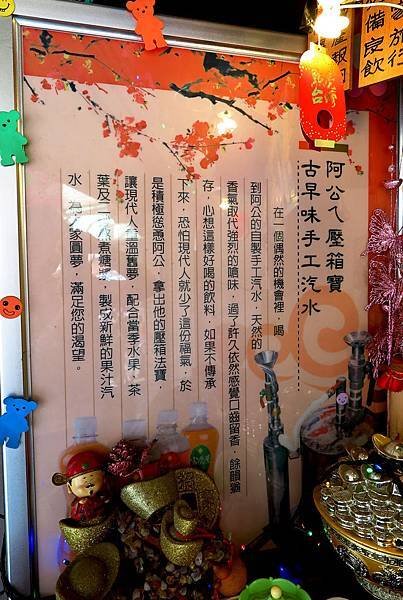 阿公ㄟ壓箱寶
古早味手工汽水
在一個偶然的機會裡，喝
到阿公的自製手工汽水，天然的
香氣取代強烈的嗆味，過了許久依然感覺口齒留香，餘韻猶
存，心想這樣好喝的飲料 如果不傳承
下來，恐怕現代人就少了這份福氣，於
是積極慫恿阿公，拿出他的壓箱法寶，
讓現代人 溫舊夢，配合當季水果、茶
葉及二 煮糖漿 製成新鮮的果汁汽
水 為 家圓夢，滿足您的渴望。
台灣
備茛飲
旅行